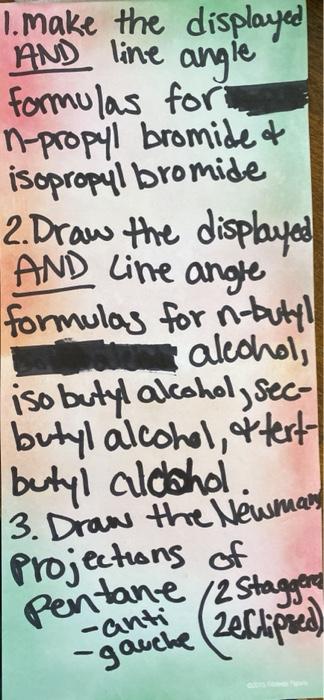 1. Make the displayed
AND line angle
formulas for
n-propyl bromide &
isopropyl bromide
2. Draw the displayed
AND Line angle
formulas for n-butyl
alcohol,
isobutyl alcohol, sec-
butyl alcohol, & tert-
butyl alcohol.
3. Draw the Newman
Projections of
Pentane (2 Staggered
-anti 2 eclipsed)
-gauche